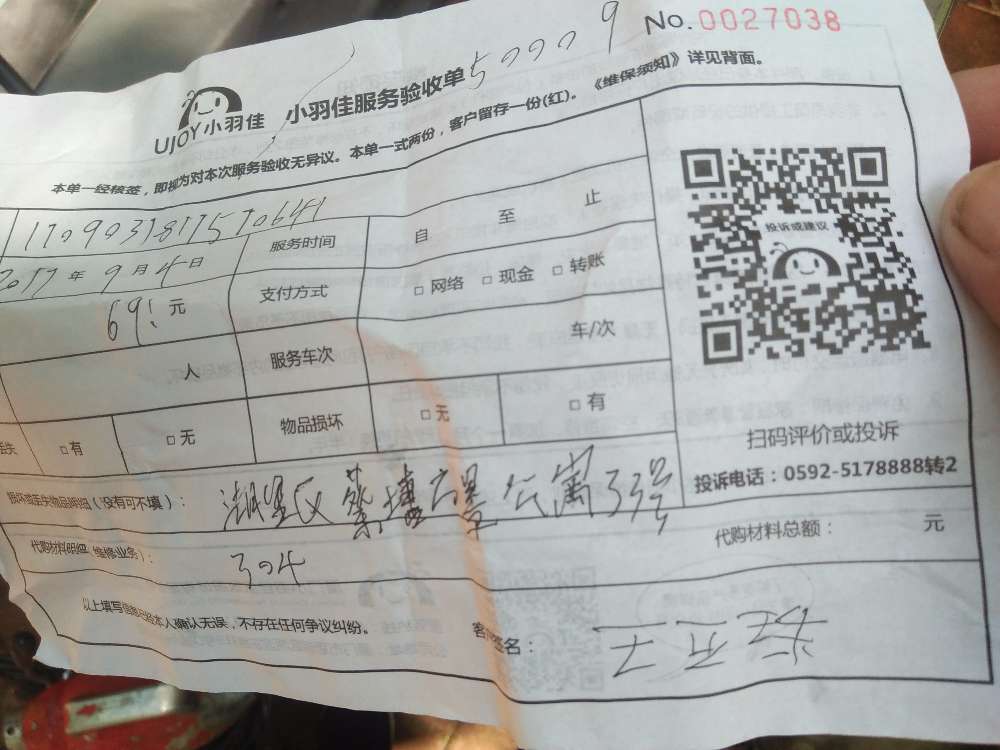 No.0027038
UJOY小羽佳 小羽佳服务验收单 50009
本单一经核签，即视为对本次服务验收无异议。本单一式两份，客户留存一份(红)。《维保须知》详见背面。
1709031817570641 服务时间 自 至 止
2017年9月4日 支付方式 □网络 □现金 □转账
69! 元
人 服务车次 车/次
丢失 □有 □无 物品损坏 □无 □有
投诉或建议
扫码评价或投诉
投诉电话：0592-5178888转2
损坏或丢失物品明细（没有可不填）： 湖里区 公寓33号
代购材料明细（维修业务）： 304 代购材料总额： 元
以上填写信息已经本人确认无误，不存在任何争议纠纷。 客户签名：